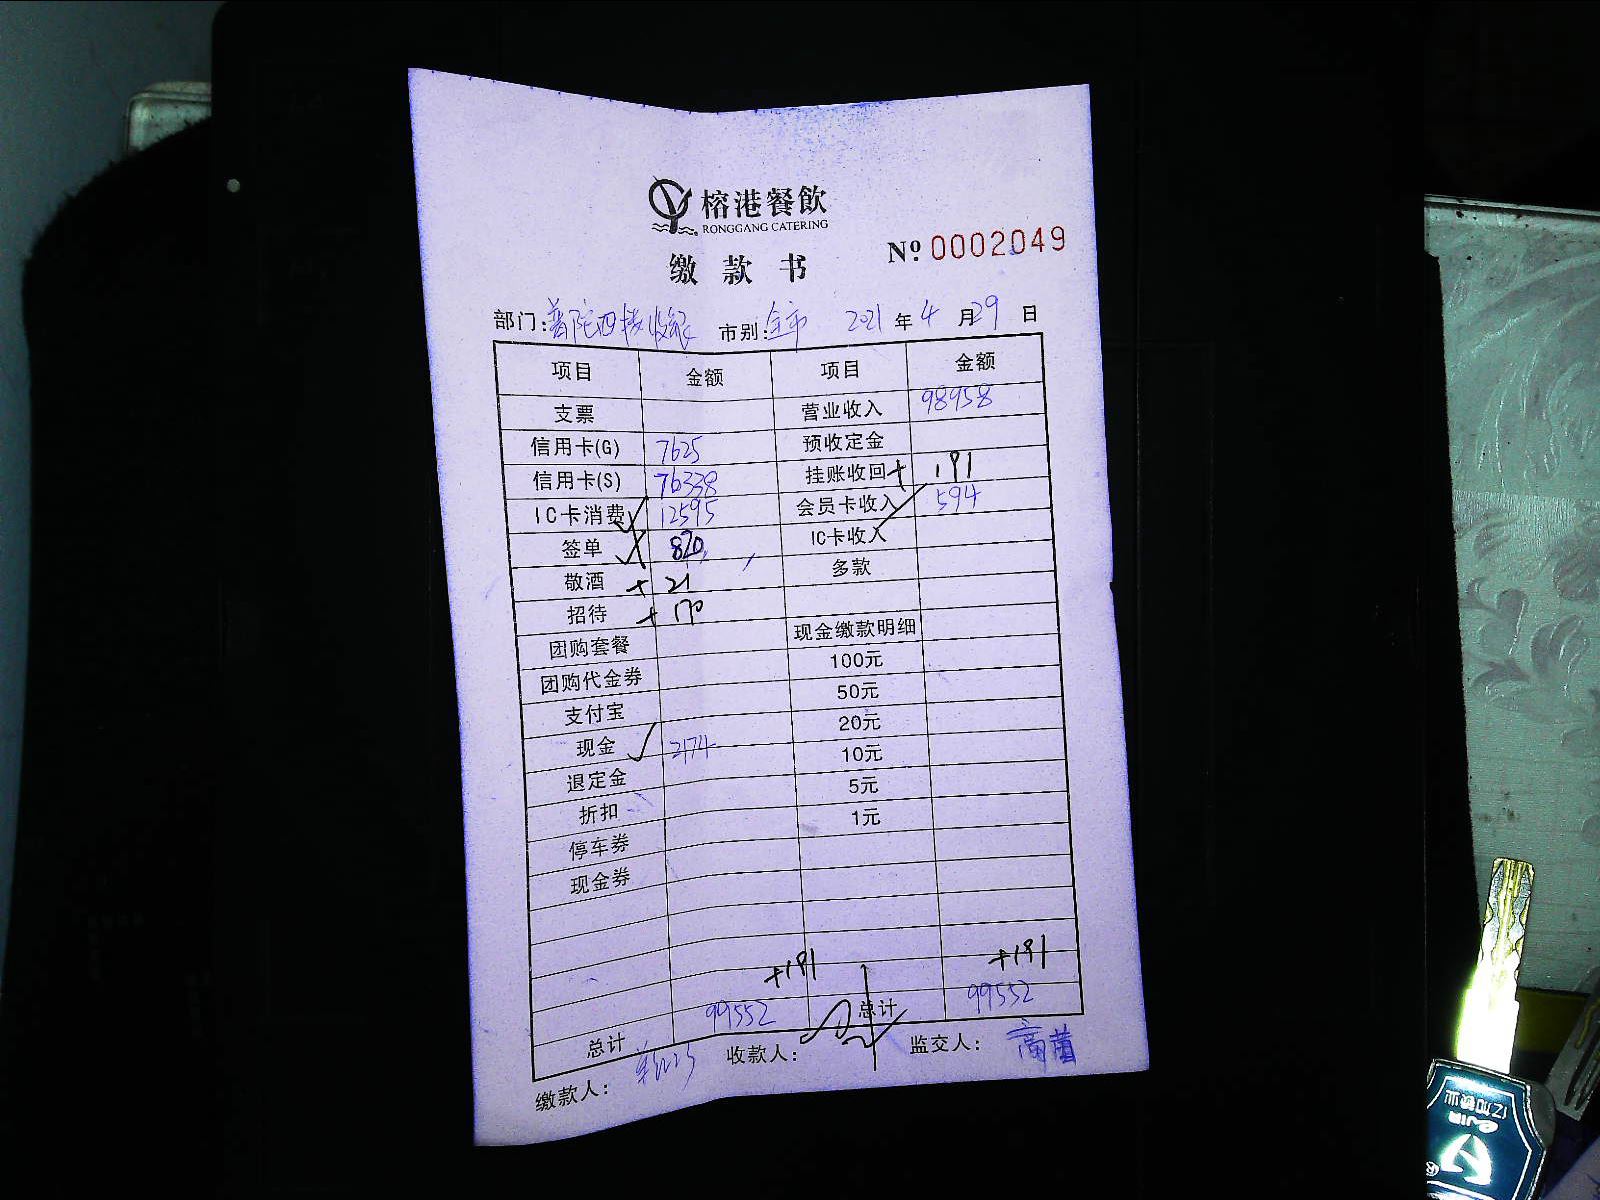 榕港餐飲
RONGGANG CATERING
缴款书
Nº 0002049
部门: 普陀四楼收银 市别: 全市 2021 年 4 月 29 日
项目 金额 项目 金额
支票 营业收入 98958
信用卡(G) 7625 预收定金
信用卡(S) 76338 挂账收回 + 191
IC卡消费 12595 会员卡收入 594
签单 820 IC卡收入
敬酒 + 21 多款
招待 + 170
团购套餐 现金缴款明细
团购代金券 100元
支付宝 50元
现金 ✓ 2174 20元
退定金 10元
折扣 5元
停车券 1元
现金券
+191 +191
总计 99552 总计 99552
缴款人: 收款人: 监交人:
亿君锁业